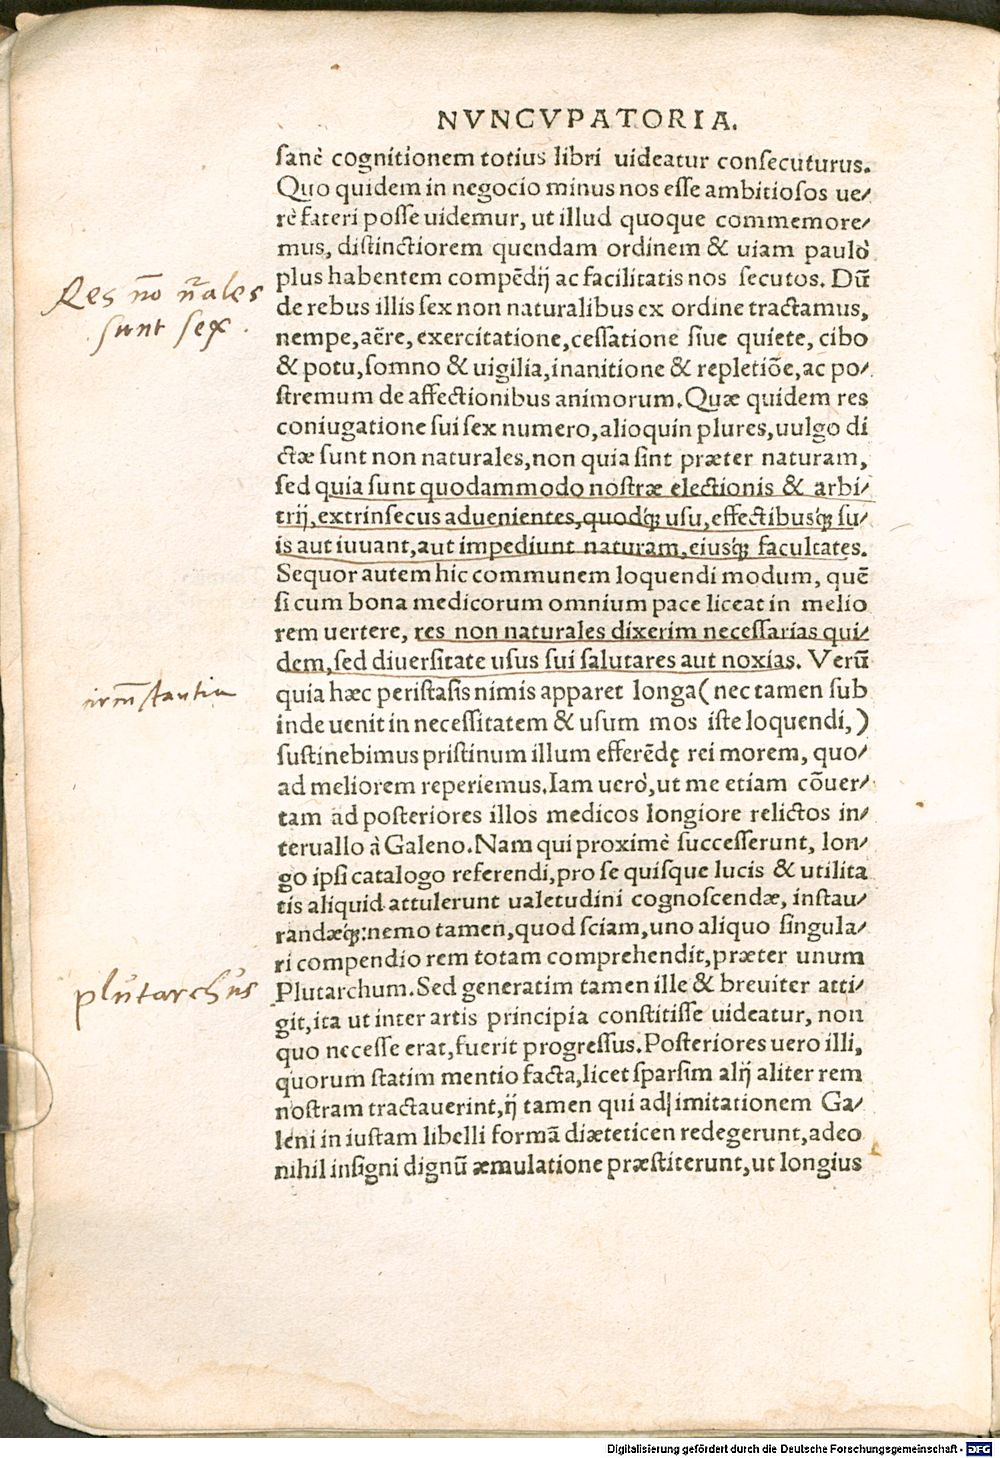 NVNCVPATORIA.
sanè cognitionem totius libri uideatur consecuturus.
Quo quidem in negocio minus nos esse ambitiosos ue/
rè fateri posse uidemur, ut illud quoque commemore/
mus, distinctiorem quendam ordinem & uiam paulò
plus habentem compẽdij ac facilitatis nos secutos. Dũ
de rebus illis sex non naturalibus ex ordine tractamus,
Res nõ nr̃ales
sunt sex.
nempe, aëre, exercitatione, cessatione siue quiete, cibo
& potu, somno & uigilia, inanitione & repletiõe, ac po/
stremum de affectionibus animorum. Quæ quidem res
coniugatione sui sex numero, alioquin plures, uulgo di
ctæ sunt non naturales, non quia sint præter naturam,
sed quia sunt quodammodo nostræ electionis & arbi/
trij, extrinsecus aduenientes, quodq́; usu, effectibusq́; su/
is aut iuuant, aut impediunt naturam, eiusq́; facultates.
Sequor autem hic communem loquendi modum, quẽ
si cum bona medicorum omnium pace liceat in melio
rem uertere, res non naturales dixerim necessarias qui/
dem, sed diuersitate usus sui salutares aut noxias. Verũ
quia hæc peristasis nimis apparet longa (nec tamen sub
inde uenit in necessitatem & usum mos iste loquendi,)
sustinebimus pristinum illum efferẽdę rei morem, quo/
ad meliorem reperiemus. Iam uerò, ut me etiam cõuer/
tam ad posteriores illos medicos longiore relictos in/
teruallo à Galeno. Nam qui proximè successerunt, lon/
go ipsi catalogo referendi, pro se quisque lucis & utilita
tis aliquid attulerunt ualetudini cognoscendæ, instau/
randæq́;: nemo tamen, quod sciam, uno aliquo singula/
ri compendio rem totam comprehendit, præter unum
plũtarchũs
Plutarchum. Sed generatim tamen ille & breuiter atti/
git, ita ut inter artis principia constitisse uideatur, non
quo necesse erat, fuerit progressus. Posteriores uero illi,
quorum statim mentio facta, licet sparsim alij aliter rem
nostram tractauerint, ij tamen qui ad imitationem Ga/
leni in iustam libelli formã diæteticen redegerunt, adeo
nihil insigni dignũ æmulatione præstiterunt, ut longius
Digitalisierung gefördert durch die Deutsche Forschungsgemeinschaft - DFG